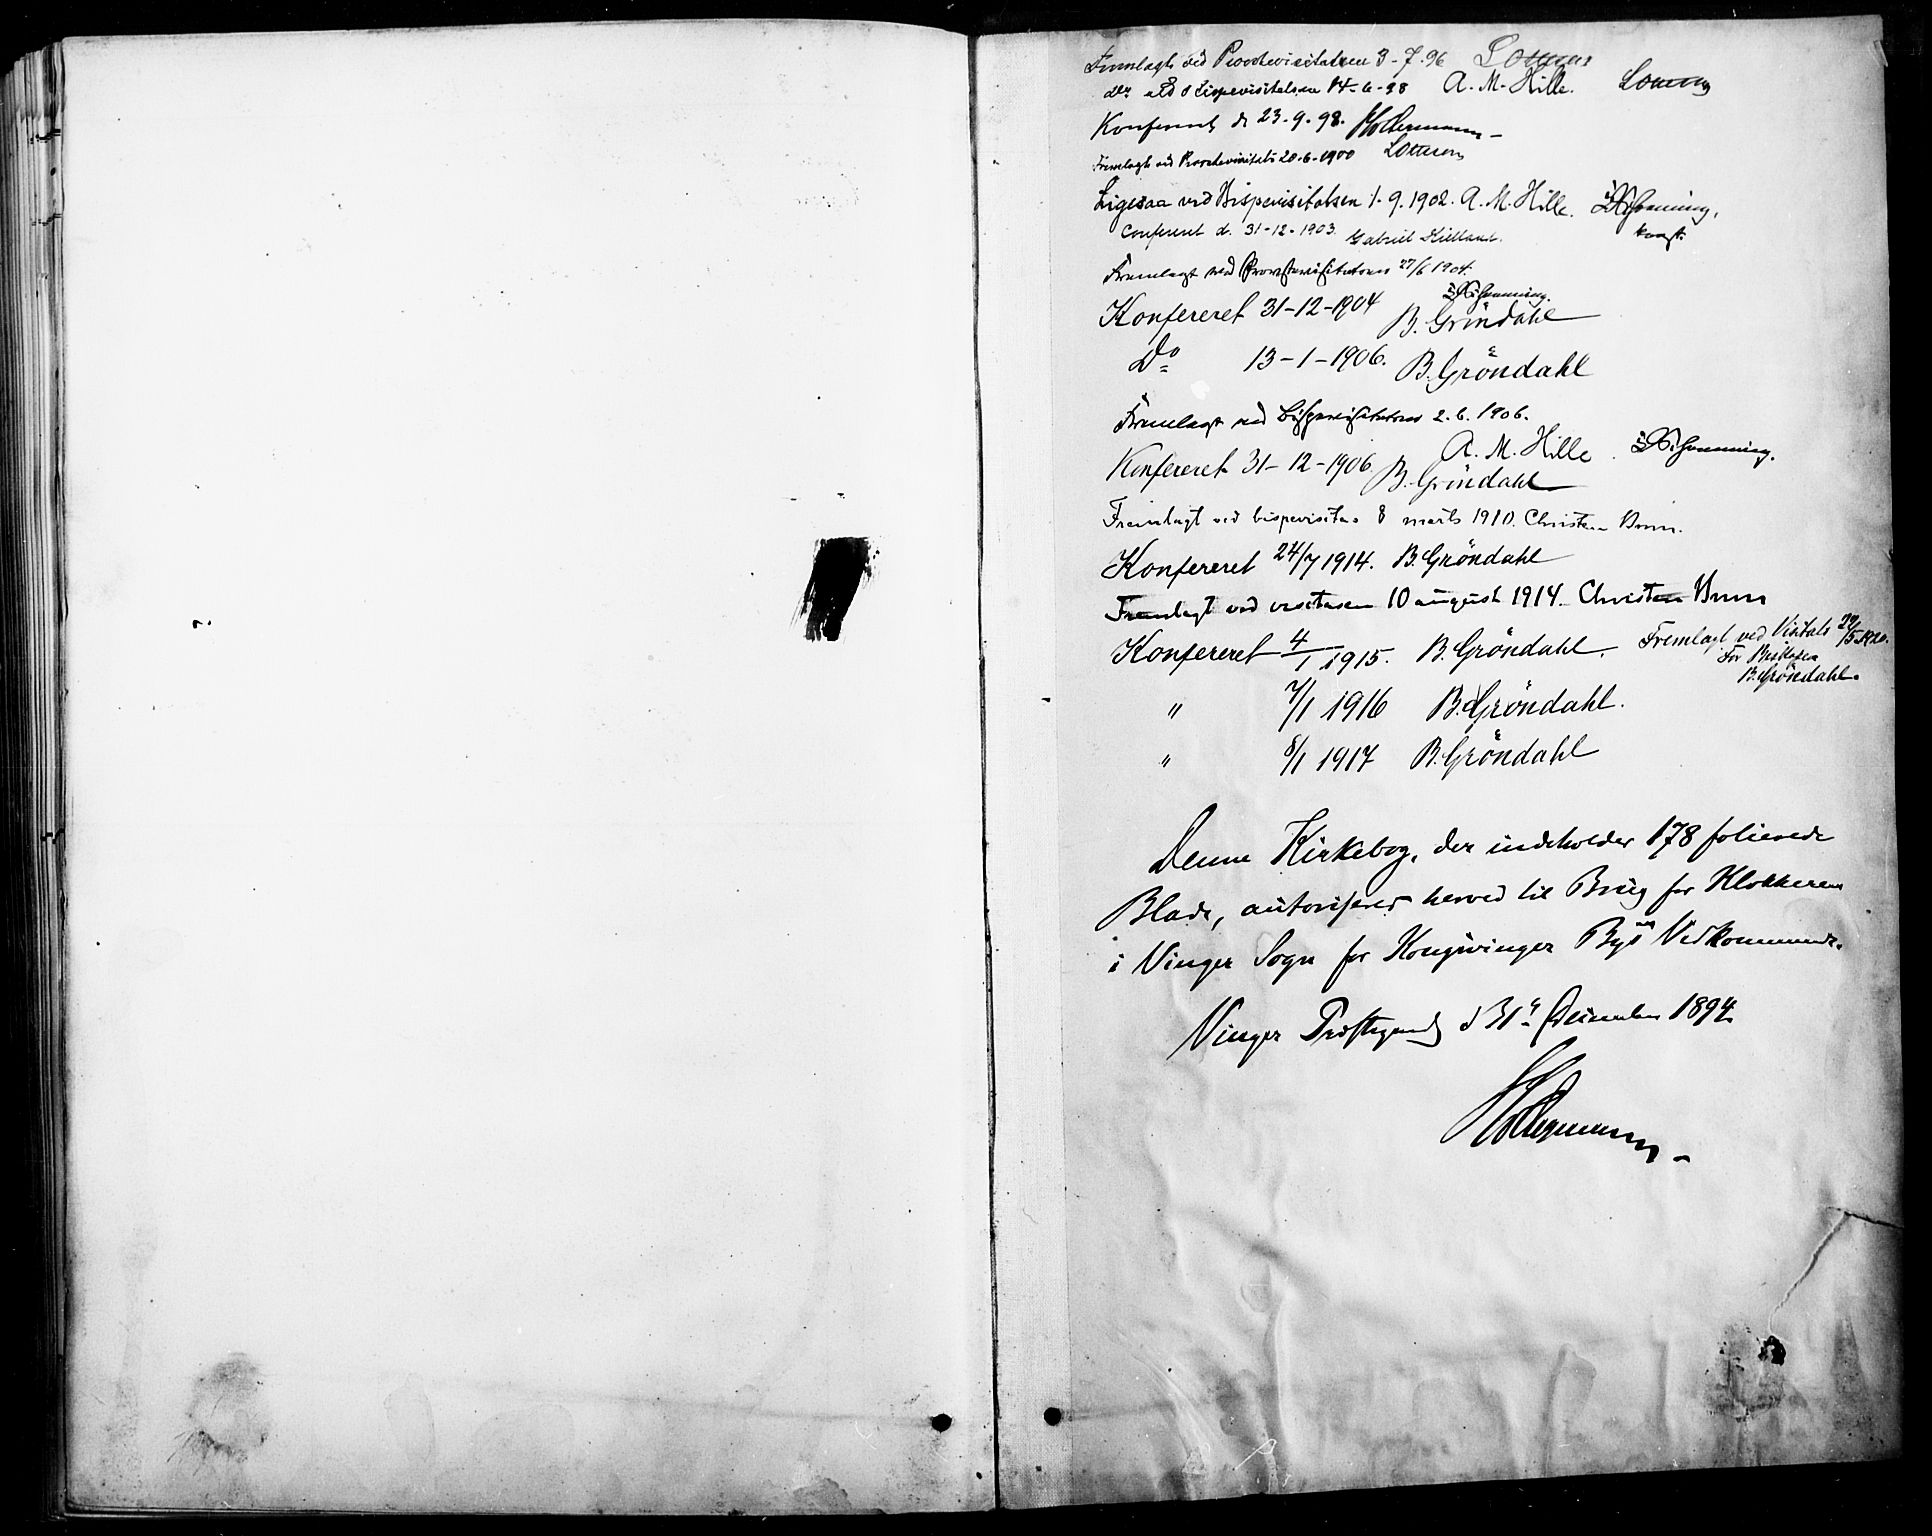 Fremlagt ved Provstevisitatsen 3-7-96
do ved Bispevisitatsen 14-6-98 A. M. Hille.
Konfereret d. 23-9-98. Holtermann
Fremlagt ved Provstevisitats 20-6-1900
Ligesaa ved Bispevisitatsen 1.9.1902. A. M. Hille.
const.
Conferert d. 31-12-1903. Gabriel Kielland.
Fremlagt ved Provstevisitatsen 27/6 1904.
Konfereret 31-12-1904 B. Gröndahl
Do 13-1-1906. B. Gröndahl
Fremlagt ved Bispevisitatsen 2.6.1906.
A. M. Hille.
Konfereret 31-12-1906 B. Gröndahl
Fremlagt ved bispevisitas 8 marts 1910. Christen Brun.
Konfereret 24/7 1914. B. Gröndahl
Fremlagt ved visitasen 10 august 1914. Christen Brun
Konfereret 4/1 1915. B. Gröndahl.
Fremlagt ved Visitats 29/5 1920.
For Biskopen
B. Gröndahl.
" 7/1 1916 B. Gröndahl.
" 8/1 1917 B. Gröndahl
Denne Kirkebog, der indeholder 178 folierede
Blade, autoriseres herved til Brug for Klokkeren
i Vinger Sogn for Kongsvinger Bys Vedkommende.
Vinger Præstegjæld d 31 December 1894.
Holtermann